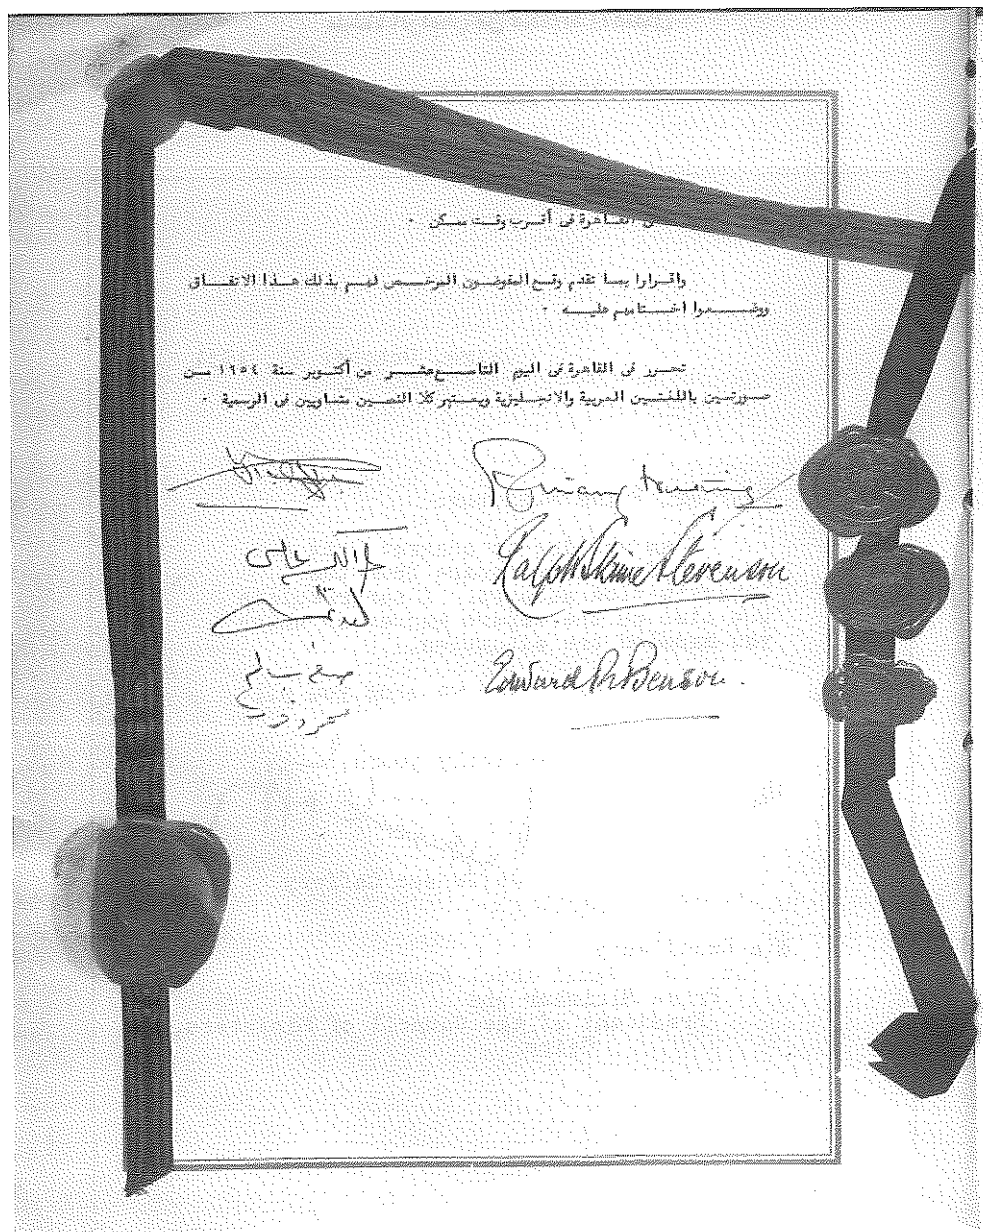 القاهرة فى أقرب وقت ممكن ٠
واقرارا بما تقدم وقع المفوضون المرخص لهم بذلك هذا الاتفاق
ووضعوا اختامهم عليه ٠
تحرر فى القاهرة فى اليوم التاسع عشر من أكتوبر سنة ١٩٥٤ من
صورتين باللغتين العربية والانجليزية ويعتبر كلا النصين متساويين فى الرسمية ٠
Ralph Skrine Stevenson
Edward R. Benson.